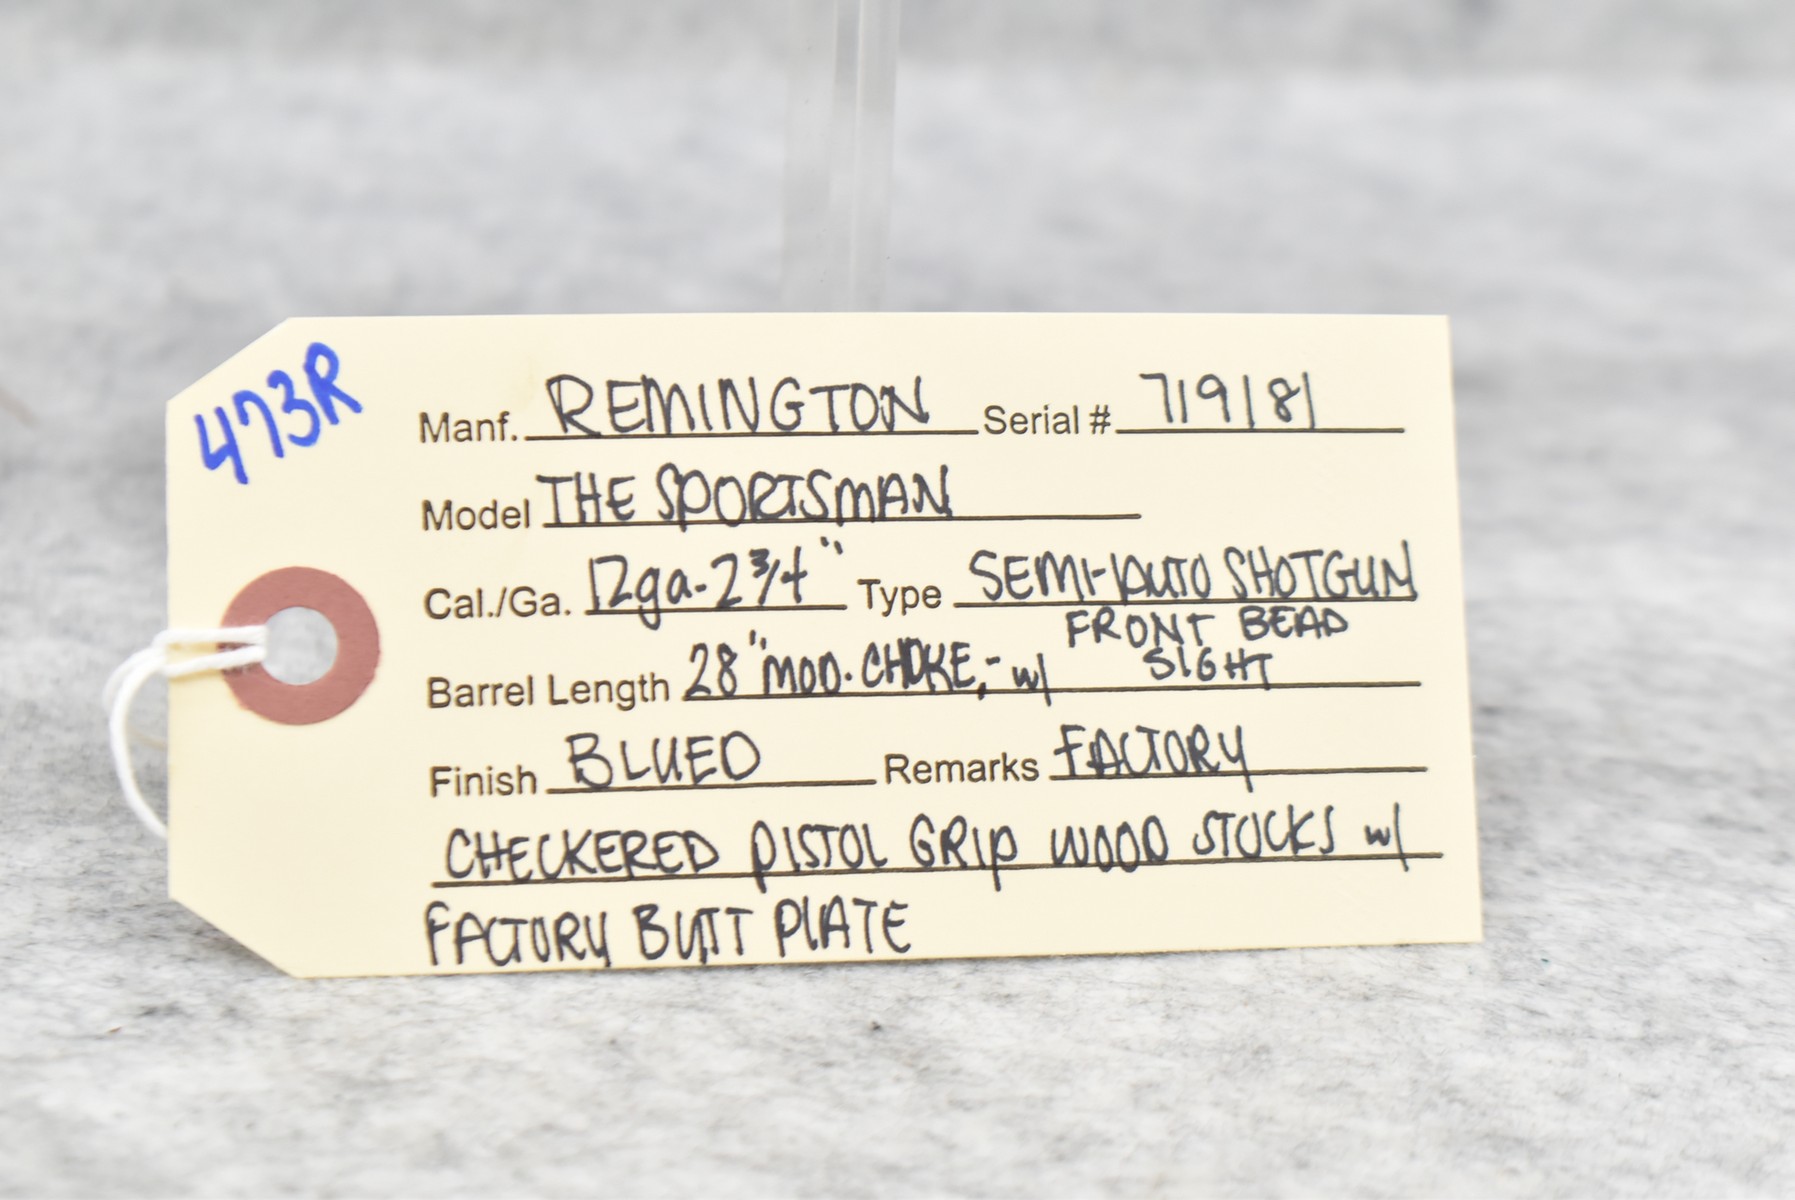 473R
Manf. REMINGTON Serial # 719181
Model THE SPORTSMAN
Cal./Ga. 12ga-2 3/4" Type SEMI-AUTO SHOTGUN
Barrel Length 28" MOD. CHOKE,- w/ FRONT BEAD
SIGHT
Finish BLUED Remarks FACTORY
CHECKERED PISTOL GRIP WOOD STOCKS w/
FACTORY BUTT PLATE